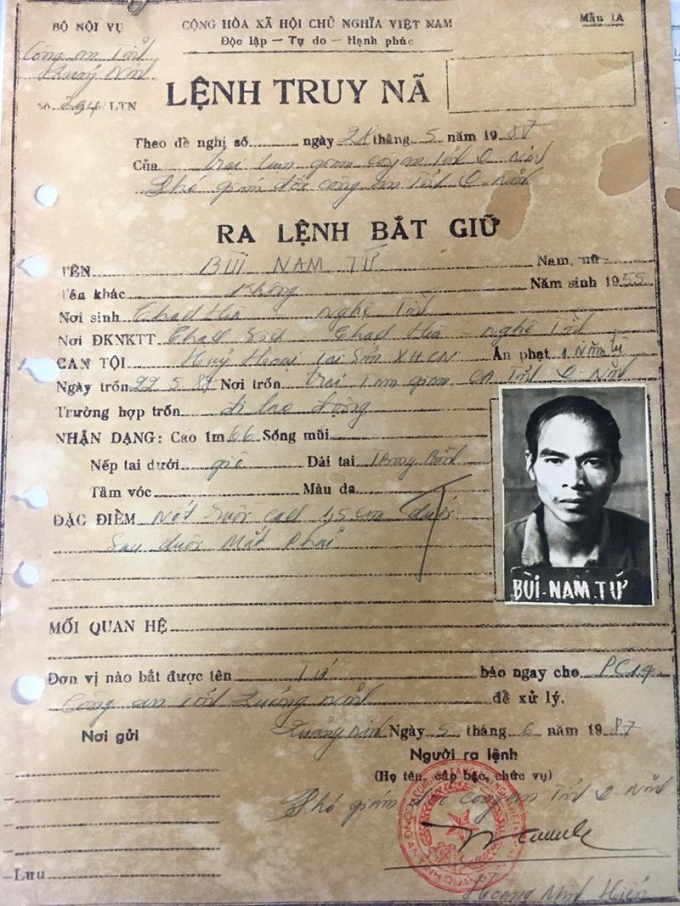 BỘ NỘI VỤ
CỘNG HÒA XÃ HỘI CHỦ NGHĨA VIỆT NAM
Mẫu 1A
Độc lập – Tự do – Hạnh phúc
Công an Tỉnh
Quảng Ninh
Số LTN
LỆNH TRUY NÃ
Theo đề nghị số ngày tháng 5 năm 1987
Của trại tạm giam công an Tỉnh Q. Ninh
Phó giám đốc công an Tỉnh Q. Ninh
RA LỆNH BẮT GIỮ
TÊN BÙI NAM TỨ Nam, nữ
Tên khác Không Năm sinh 1955
Nơi sinh Nghệ Tĩnh
Nơi ĐKNKTT Nghệ Tĩnh
CAN TỘI Huỷ Hoại Tài Sản XHCN Án phạt 1 Năm tù
Ngày trốn 22.5.87 Nơi trốn trại Tạm giam CA Tỉnh Q. Ninh
Trường hợp trốn đi lao động
NHẬN DẠNG: Cao 1m66 Sống mũi
Nếp tai dưới Dái tai
Tầm vóc Màu da
ĐẶC ĐIỂM Nốt ruồi dưới
Sau đuôi Mắt Phải
BÙI NAM TỨ
MỐI QUAN HỆ
Đơn vị nào bắt được tên Tứ báo ngay cho PC14
Công an Tỉnh Quảng Ninh để xử lý.
Nơi gửi
Quảng Ninh Ngày 5 tháng 6 năm 1987
Người ra lệnh
(Họ tên, cấp bậc, chức vụ)
Phó giám đốc công an Tỉnh Q. Ninh
Lưu